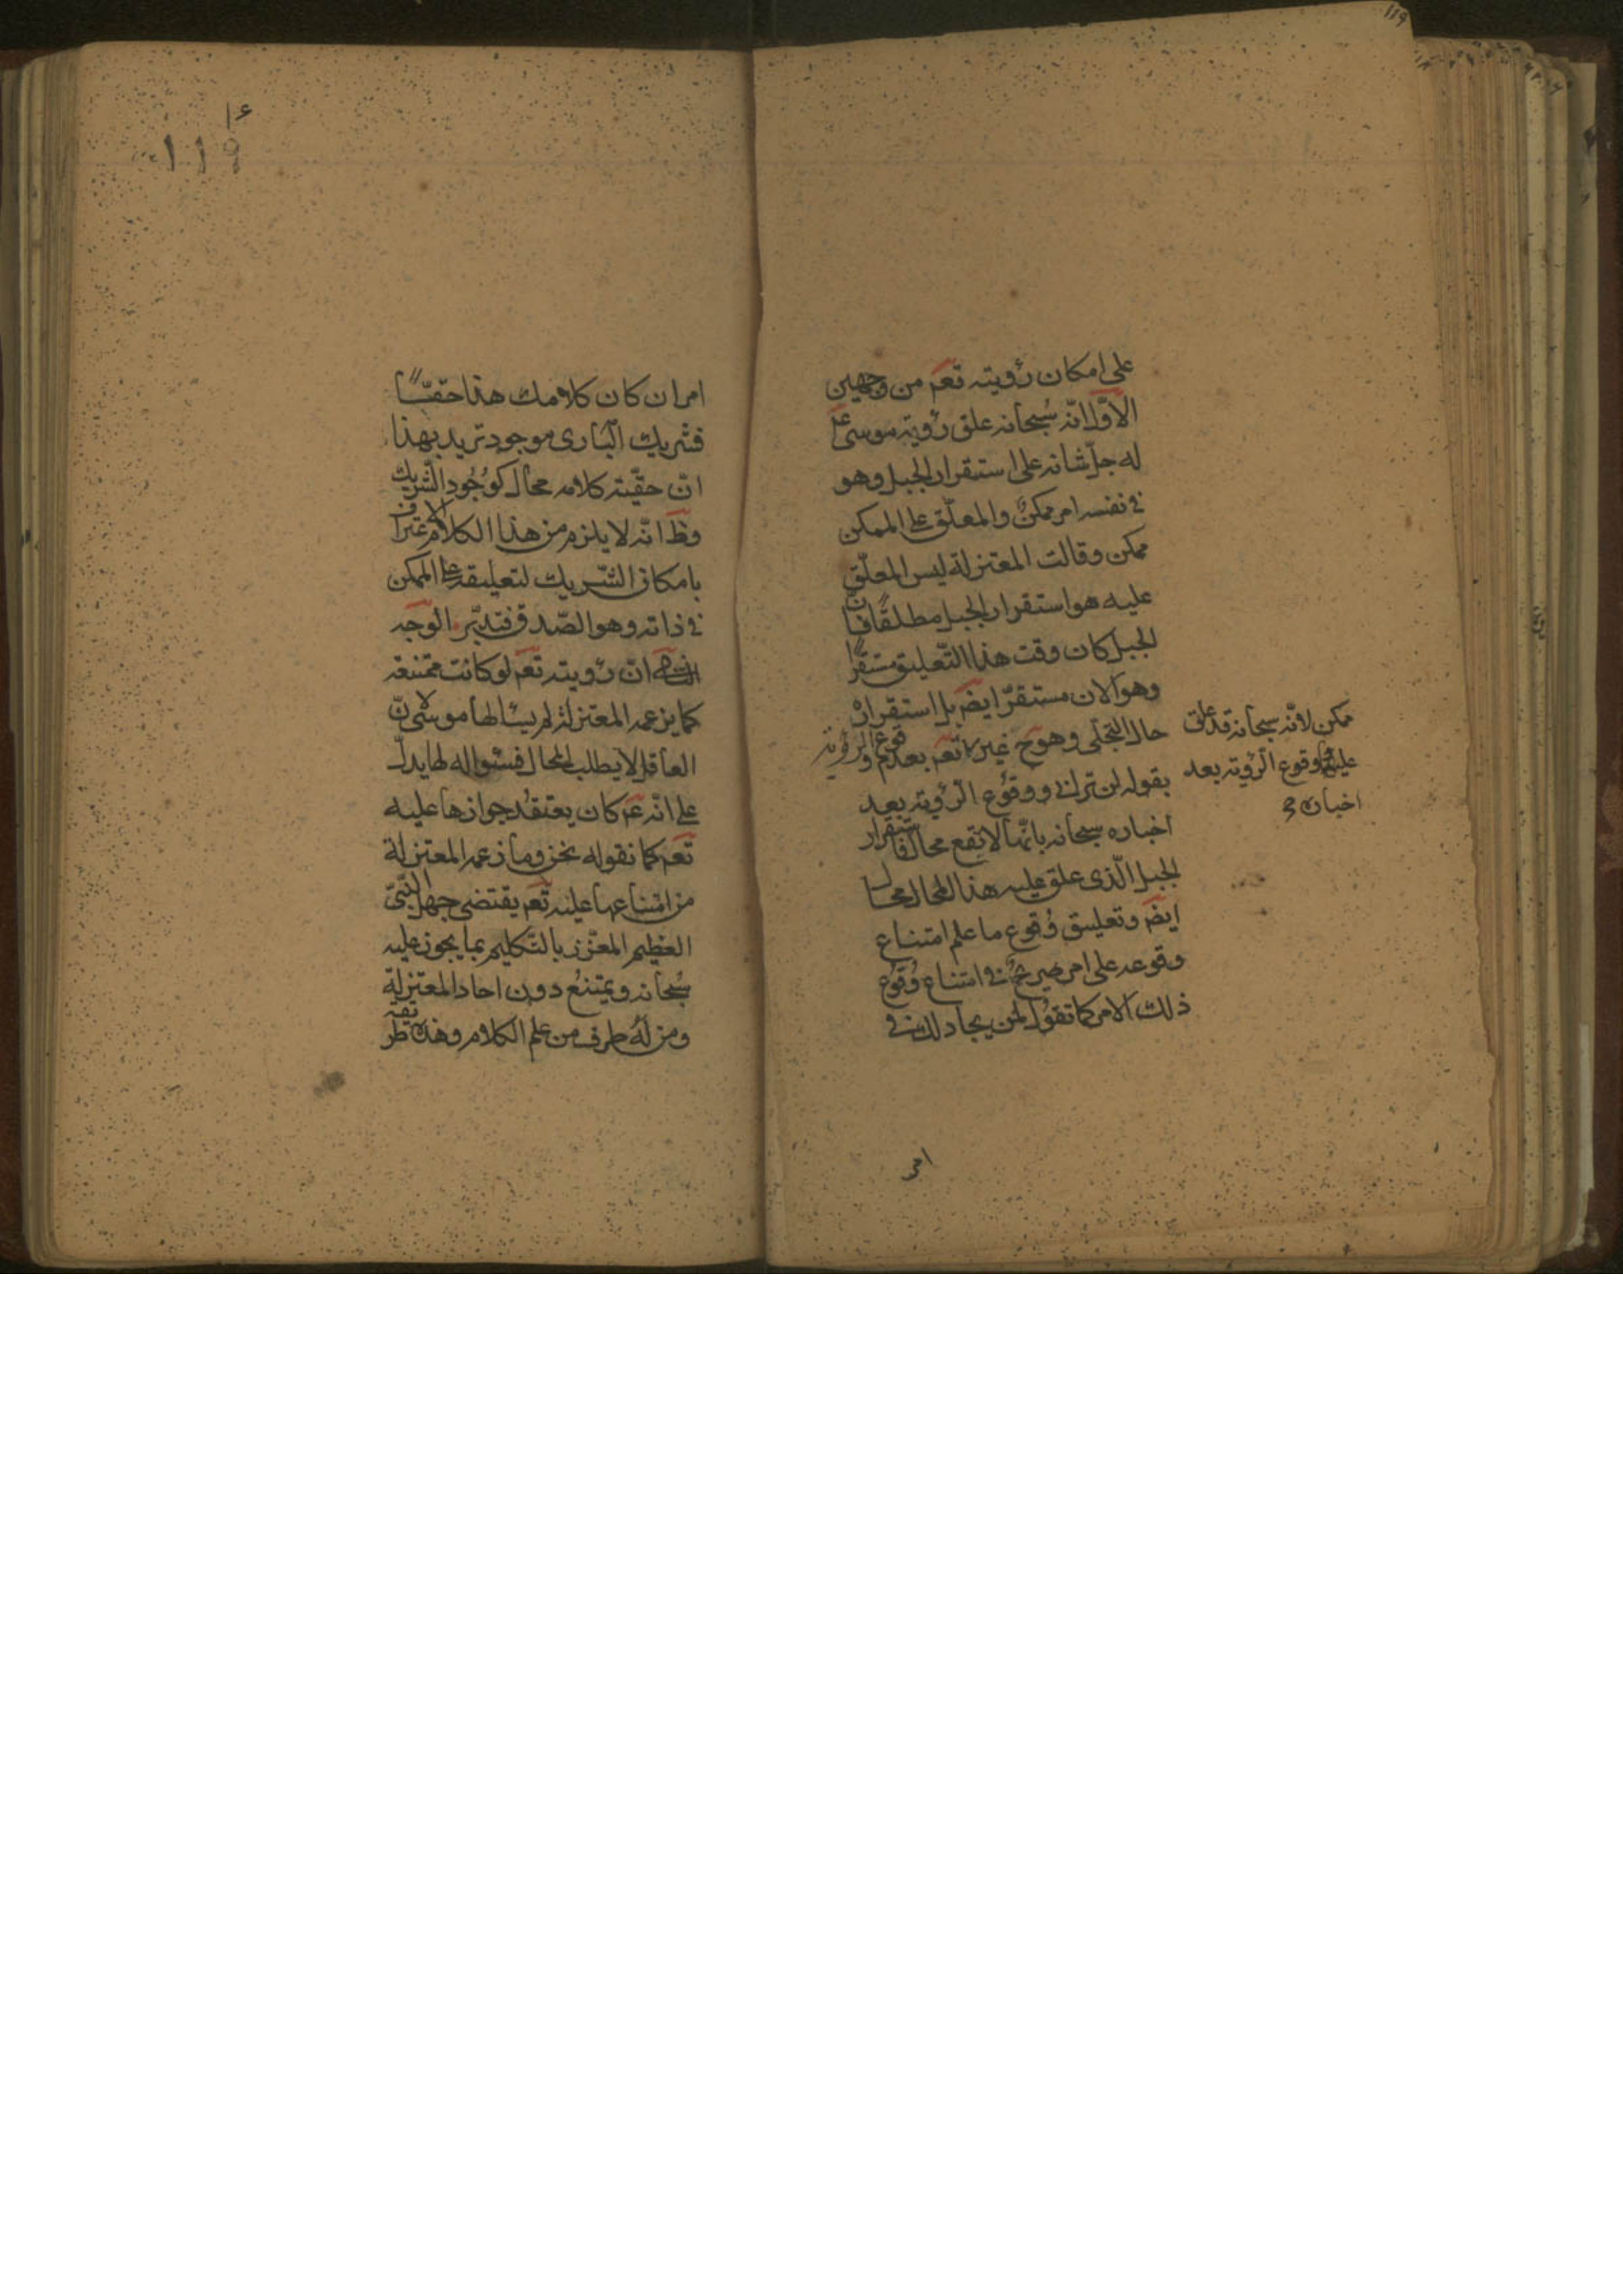 ١١٩
على امكان رؤيته تعم من وجهين
الأوّل انّه سُبحانه علق رؤية موسى عم
له جلّ شانه على استقرار الجبل وهو
في نفسه امر ممكن والمعلّق على الممكن
ممكن وقالت المعتزلة ليس المعلّق
عليه هو استقرار الجبل مطلقًا فانّ
الجبل كان وقت هذا التّعليق مستقرًّا
وهو الان مستقرّ ايضَ بل استقراره
حال التجلّى وهوح غير
تعم بعدم وقوع الرؤية
بقوله لن ترانى ووقوع الرؤية بعد
اخباره سبحانه بانّها لا تقع محال فاستقرار
الجبل الّذى علق عليه هذا المحال محال
ايضَ وتعليق وُقوع ما علم امتناع
وقوعه على امر صريحٌ فى امتناع وُقوع
ذلك الامر كما تقول لمن يجادلك فى
ممكن لأنّه سبحانه قد علق
عليه وقوع الرؤية بعد
اخباره
امر
١١٩
امر ان كان كلامك هذا حقًّا
فشريك البَارى موجود تريد بهذا
انّ حقّية كلامه محال كوُجُود الشّريك
وظَ انّه لا يلزم من هذا الكلام الاعتراف
بامكان الشّريك لتعليقه على الممكن
فى ذاته وهو الصّدق فتدبّر الوَجه
الثانى انّ رؤيته تعم لو كانت ممتنعة
كما يزعمه المعتزلة لم يسالها موسى لانّ
العاقل لا يطلب المحال فسؤاله لها يدلّ
على انّه عم كان يعتقد جوازها عليه
تعم كما نقوله نحن وما زعمه المعتزلة
من امتناعها عليه تعم يقتضى جهل النّبىّ
العظيم المعزّز بالتّكليم بما يجوز عليه
سُبحانه ويمتنع دون احاد المعتزلة
ومن لهُ طرف من علم الكلام وهذه طريقة